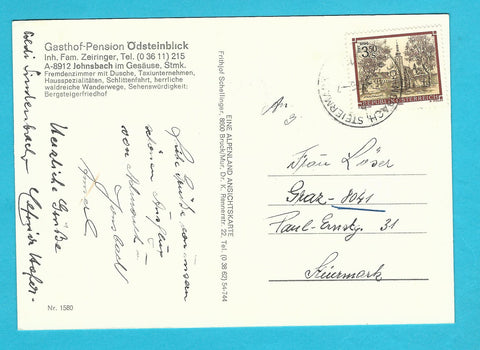 Gasthof-Pension Ödsteinblick
Inh. Fam. Zeiringer, Tel. (0 36 11) 215
A-8912 Johnsbach im Gesäuse, Stmk.
Fremdenzimmer mit Dusche, Taxiunternehmen,
Hausspezialitäten, Schlittenfahrt, herrliche
waldreiche Wanderwege, Sehenswürdigkeit:
Bergsteigerfriedhof
Herzliche Grüße
Liebe Grüße von
schönen Ausflug
von
Nr. 1580
EINE ALPENLAND ANSICHTSKARTE
Frithjof Schellinger, 8600 Bruck/Mur, Dr.-K.-Rennerstr. 22, Tel. (0 38 62) 54-7 44
3.50
REPUBLIK ÖSTERREICH
BACH, STEIERMARK
An
Frau
Graz - 8041
Paul-Ernstg. 31
Steiermark